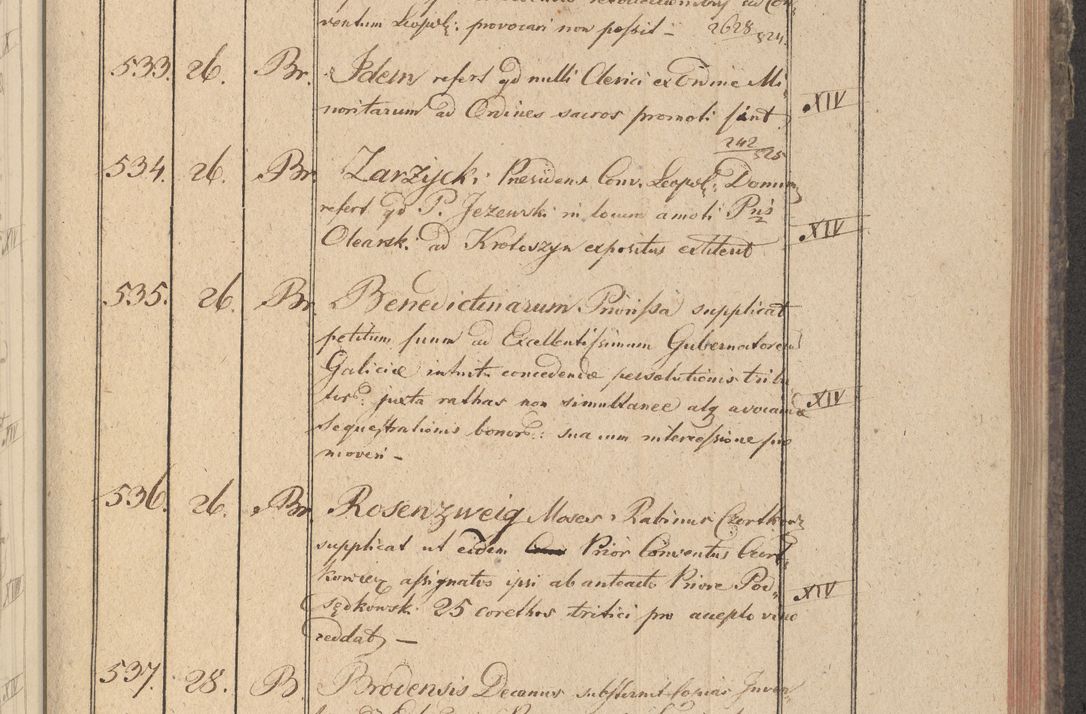 ventum Leopol: provocari non possit – 2628 524.
533. 26. Br. Idem refert qd nulli Clerici ex Ordine Mi-
noritarum ad Ordines sacros promoti sint. .XIV
242 525
534. 26. Br. Zarzycki Presidens Conv. Leopol: Domini
refert qd P. Jezewski in locum amoti Pris
Olearski ad Krotoszyn expositus extiterit .XIV
535. 26. Br. Benedictinarum Priorissa supplicat
petitum suum ad Excellentissimum Gubernatorem
Galiciæ intuitu concedendæ persolutionis tribu
juxta rathas non simultanee atq avocandæ XIV
sequestrationis bonor: sua cum intercessione pro
moveri –
536. 26. Br. Rosenzweig Moses Rabinus Czortkow
supplicat ut eidem Prior Conventus Czort,
kowiez assignatos ipsi ab anteacto Priore Pod,
sędkowski 25 corethos tritici pro accepto vino XIV
reddat –
537. 28. B. Brodensis Decanus substernit copias Inven